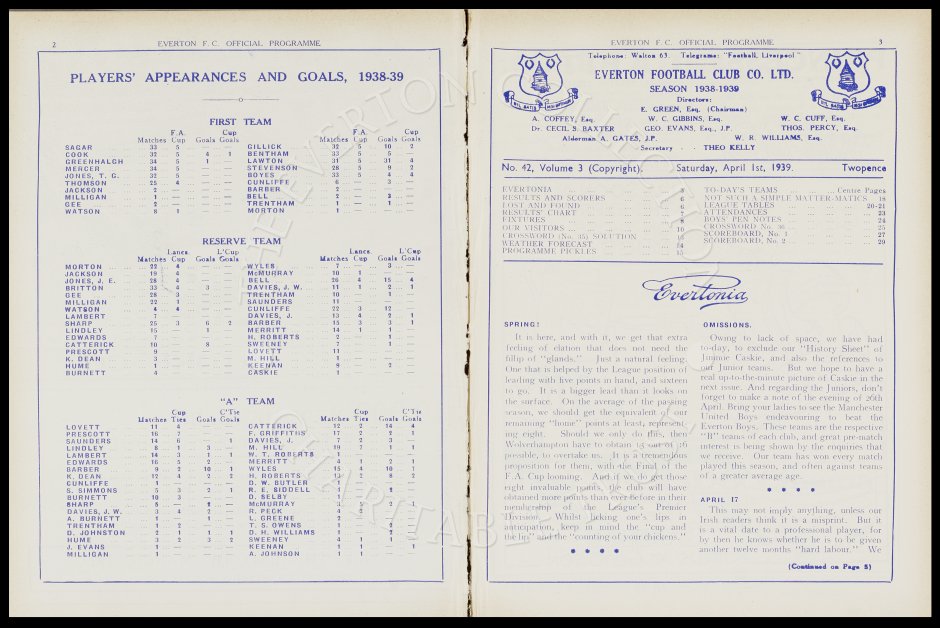 2 EVERTON F.C. OFFICIAL PROGRAMME
PLAYERS' APPEARANCES AND GOALS, 1938-39
FIRST TEAM
F.A. Cup
Matches Cup Goals Goals
SAGAR 33 5
COOK 32 5 4 1
GREENHALGH 34 5 1
MERCER 34 5
JONES, T. G. 32 5
THOMSON 25 4
JACKSON 2
MILLIGAN 1
GEE 2
WATSON 8 1
F.A. Cup
Matches Cup Goals Goals
GILLICK 32 5 10 2
BENTHAM 33 5 5
LAWTON 31 5 31 4
STEVENSON 28 5 9 2
BOYES 33 5 4 4
CUNLIFFE 6 3
BARBER 2
BELL 2 3
TRENTHAM 1 1
MORTON 1
RESERVE TEAM
Lancs. L'Cup
Matches Cup Goals Goals
MORTON 22 4
JACKSON 19 4
JONES, J. E. 28 4
BRITTON 33 4 3
GEE 28 3
MILLIGAN 22 1
WATSON 4 4
LAMBERT 7
SHARP 25 3 6 2
LINDLEY 15 1
EDWARDS 7
CATTERICK 10 8
PRESCOTT 9
K. DEAN 3
HUME 1
BURNETT 4
Lancs. L'Cup
Matches Cup Goals Goals
WYLES 7 3
McMURRAY 10 1
BELL 26 4 15 4
DAVIES, J. W. 11 1 2 1
TRENTHAM 10 1
SAUNDERS 11
CUNLIFFE 22 3 12
DAVIES, J. 13 4 2 1
BARBER 15 3 3 1
MERRITT 14 1 1
H. ROBERTS 2 1
SWEENEY 7 1 1
LOVETT 11
M. HILL 1
KEENAN 9 2
CASKIE 1
"A" TEAM
Cup C'Tie
Matches Ties Goals Goals
LOVETT 11 4
PRESCOTT 16 7
SAUNDERS 14 6 1
LINDLEY 8 1 3
LAMBERT 14 3 1 1
EDWARDS 16 5 2
BARBER 9 2 10 1
K. DEAN 12 4 2 2
CUNLIFFE 1
S. SIMMONS 5 3 2 1
BURNETT 10 3
SHARP 5
DAVIES, J. W. 3 4 2
A. BURNETT 1
TRENTHAM 1 2
D. JOHNSTON 2 1 1 1
HUME 3 2 3 2
J. EVANS 1
MILLIGAN 1
Cup C'Tie
Matches Ties Goals Goals
CATTERICK 12 2 14 4
F. GRIFFITHS 17 2 2 1
DAVIES, J. 7 2 3
M. HILL 19 7 1 1
W. T. ROBERTS 1
MERRITT 4 1 2 1
WYLES 15 4 10 1
H. ROBERTS 8 2
D. W. BUTLER
R. E. SIDDELL 1
D. SELBY 1
McMURRAY 3 1
R. PECK 4
L. GREENE 2
T. S. OWENS 1
D. H. WILLIAMS 1
SWEENEY 4 1 1
KEENAN 1 1 1
A. JOHNSON 1 1
EVERTON F.C. OFFICIAL PROGRAMME 3
Telephone: Walton 63. Telegrams: "Football, Liverpool"
EVERTON FOOTBALL CLUB CO. LTD.
SEASON 1938-1939
Directors:
E. GREEN, Esq. (Chairman)
A. COFFEY, Esq. W. C. GIBBINS, Esq. W. C. CUFF, Esq.
Dr. CECIL S. BAXTER GEO. EVANS, Esq., J.P. THOS. PERCY, Esq.
Alderman A. GATES, J.P. W. R. WILLIAMS, Esq.
Secretary THEO KELLY
No. 42, Volume 3 (Copyright). Saturday, April 1st, 1939. Twopence
EVERTONIA 3
RESULTS AND SCORERS 6
LOST AND FOUND 6
RESULTS' CHART 7
FIXTURES 8
OUR VISITORS 10
CROSSWORD (No. 35) SOLUTION 13
WEATHER FORECAST 14
PROGRAMME PICKLES 15
TO-DAY'S TEAMS Centre Pages
NOT SUCH A SIMPLE MATTER-MATICS 18
LEAGUE TABLES 20-21
ATTENDANCES 23
BOYS' PEN NOTES 24
CROSSWORD No. 36 25
SCOREBOARD, No. 1 27
SCOREBOARD, No. 2 29
Evertonia
SPRING!
It is here, and with it, we get that extra
feeling of elation that does not need the
fillip of "glands." Just a natural feeling.
One that is helped by the League position of
leading with five points in hand, and sixteen
to go. It is a bigger lead than it looks on
the surface. On the average of the passing
season, we should get the equivalent of our
remaining "home" points at least, represent-
ing eight. Should we only do this, then
Wolverhampton have to obtain 15 out of 16
possible, to overtake us. It is a tremendous
proposition for them, with the Final of the
F.A. Cup looming. And if we do get those
eight invaluable points, the club will have
obtained more points than ever before in their
membership of the League's Premier
Division. Whilst licking one's lips in
anticipation, keep in mind the "cup and
the lip" and the "counting of your chickens."
OMISSIONS.
Owing to lack of space, we have had
to-day, to exclude our "History Sheet" of
Jimmie Caskie, and also the references to
our Junior teams. But we hope to have a
real up-to-the-minute picture of Caskie in the
next issue. And regarding the Juniors, don't
forget to make a note of the evening of 26th
April. Bring your ladies to see the Manchester
United Boys endeavouring to beat the
Everton Boys. These teams are the respective
"B" teams of each club, and great pre-match
interest is being shown by the enquiries that
we receive. Our team has won every match
played this season, and often against teams
of a greater average age.
APRIL 1?
This may not imply anything, unless our
Irish readers think it is a misprint. But it
is a vital date to a professional player, for
by then he knows whether he is to be given
another twelve months "hard labour." We
(Continued on Page 5)